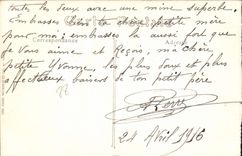 toute les deux avec une mine superbe.
Embrasse bien ta chère petite mère
pour moi; embrasses la aussi fort que
je vous aime et reçois, ma chère
petite Yvonne, les plus doux et plus
affectueux baisers de ton petit père
Carte
Correspondance
Adresse
Pierre
24 Avril 1916